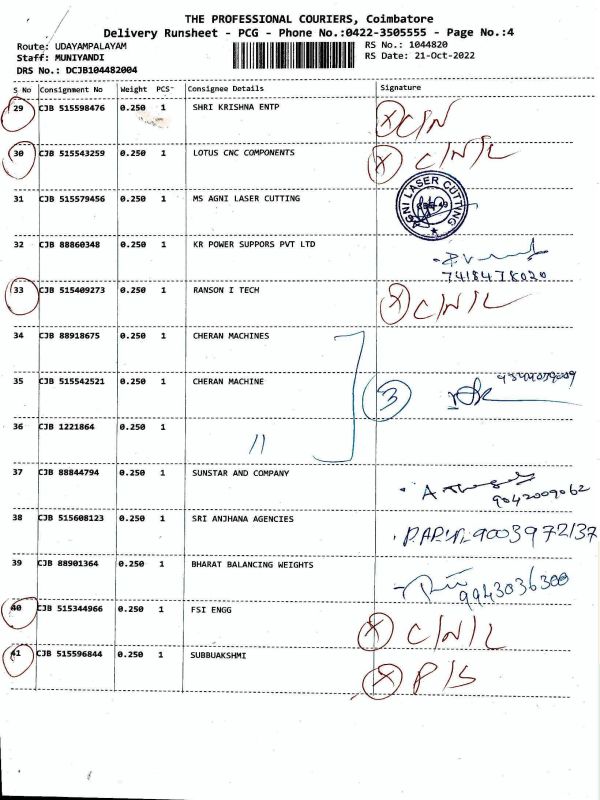 THE PROFESSIONAL COURIERS, Coimbatore
Delivery Runsheet - PCG - Phone No.:0422-3505555 - Page No.:4
Route: UDAYAMPALAYAM RS No.: 1044820
Staff: MUNIYANDI RS Date: 21-Oct-2022
DRS No.: DCJB104482004
S No Consignment No Weight PCS Consignee Details Signature
29 CJB 515598476 0.250 1 SHRI KRISHNA ENTP X C/N
30 CJB 515543259 0.250 1 LOTUS CNC COMPONENTS X C/N/L
31 CJB 515579456 0.250 1 MS AGNI LASER CUTTING AGNI LASER CUTTING
32 CJB 88860348 0.250 1 KR POWER SUPPORS PVT LTD
7418478020
33 CJB 515409273 0.250 1 RANSON I TECH X C/N/L
34 CJB 88918675 0.250 1 CHERAN MACHINES
35 CJB 515542521 0.250 1 CHERAN MACHINE 3
36 CJB 1221864 0.250 1 //
37 CJB 88844794 0.250 1 SUNSTAR AND COMPANY
9042009062
38 CJB 515608123 0.250 1 SRI ANJHANA AGENCIES 9003972137
39 CJB 88901364 0.250 1 BHARAT BALANCING WEIGHTS
9943036300
40 CJB 515344966 0.250 1 FSI ENGG X C/N/L
41 CJB 515596844 0.250 1 SUBBUAKSHMI X P/S